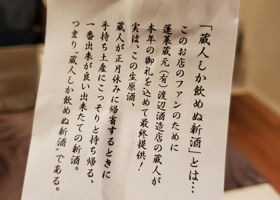 「蔵人しか飲めぬ新酒」とは…
このお店のファンのために
蓬莱蔵元(有)渡辺酒造店の蔵人が
本年の御礼を込めて最終提供!
実は、この生原酒、
蔵人が正月休みに帰省するときに
手持ち土産にこっそりと持ち帰る、
一番出来が良い出来たての新酒。
つまり"蔵人しか飲めぬ新酒"である。